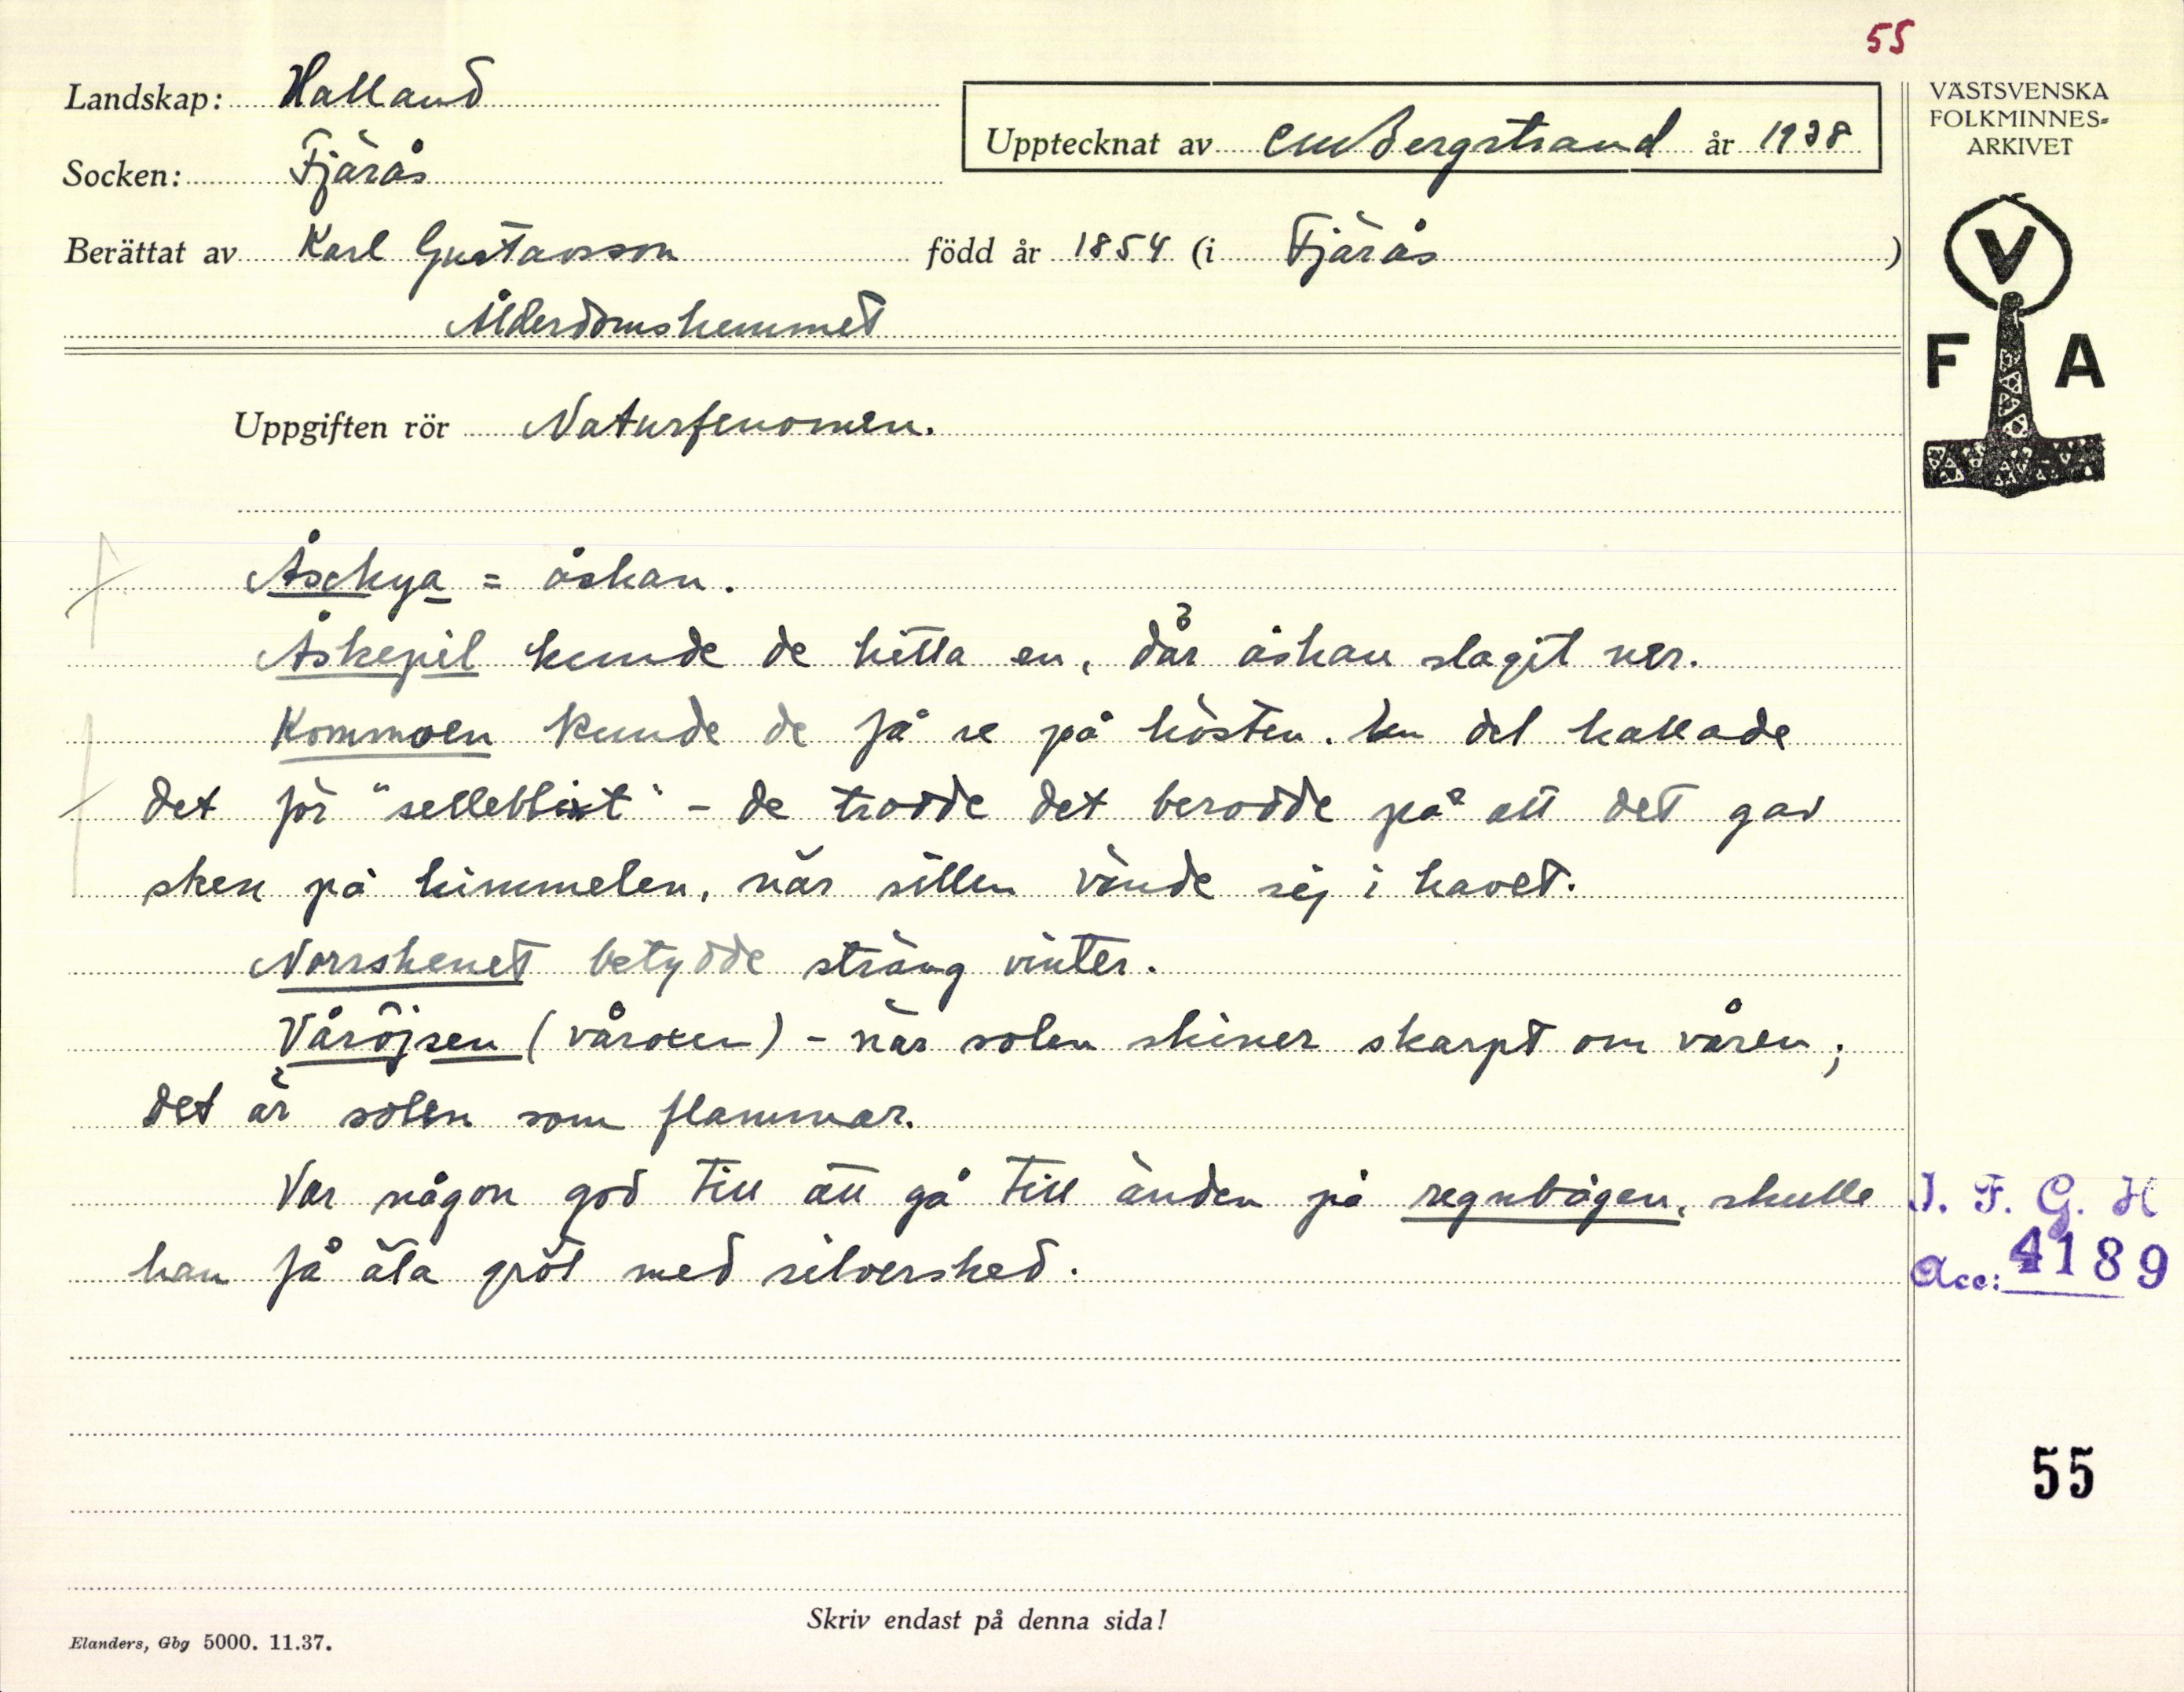 55
Landskap: Halland
Upptecknat av CMBergstrand år 1938
VÄSTSVENSKA
FOLKMINNES-
ARKIVET
Socken: Fjärås
Berättat av Karl Gustavsson född år 1854 (i Fjärås)
Ålderdomshemmet
V
F A
Uppgiften rör Naturfenomen.
Åsckya = åskan.
Åskepil kunde de hitta en, där åskan slagit ner.
Kornmoen kunde de få se på hösten. En del kallade
det för "selleblixt" - de trodde det berodde på att det gav
sken på himmelen, när sillen vände sej i havet.
Norrskenet betydde sträng vinter.
Våröjsen (våroxen) - när solen skiner skarpt om våren;
det är solen som flammar.
Var någon god till att gå till änden på regnbågen, skulle
han få äta gröt med silversked.
I. F. G. H
Acc: 4189
55
Skriv endast på denna sida!
Elanders, Gbg 5000. 11.37.